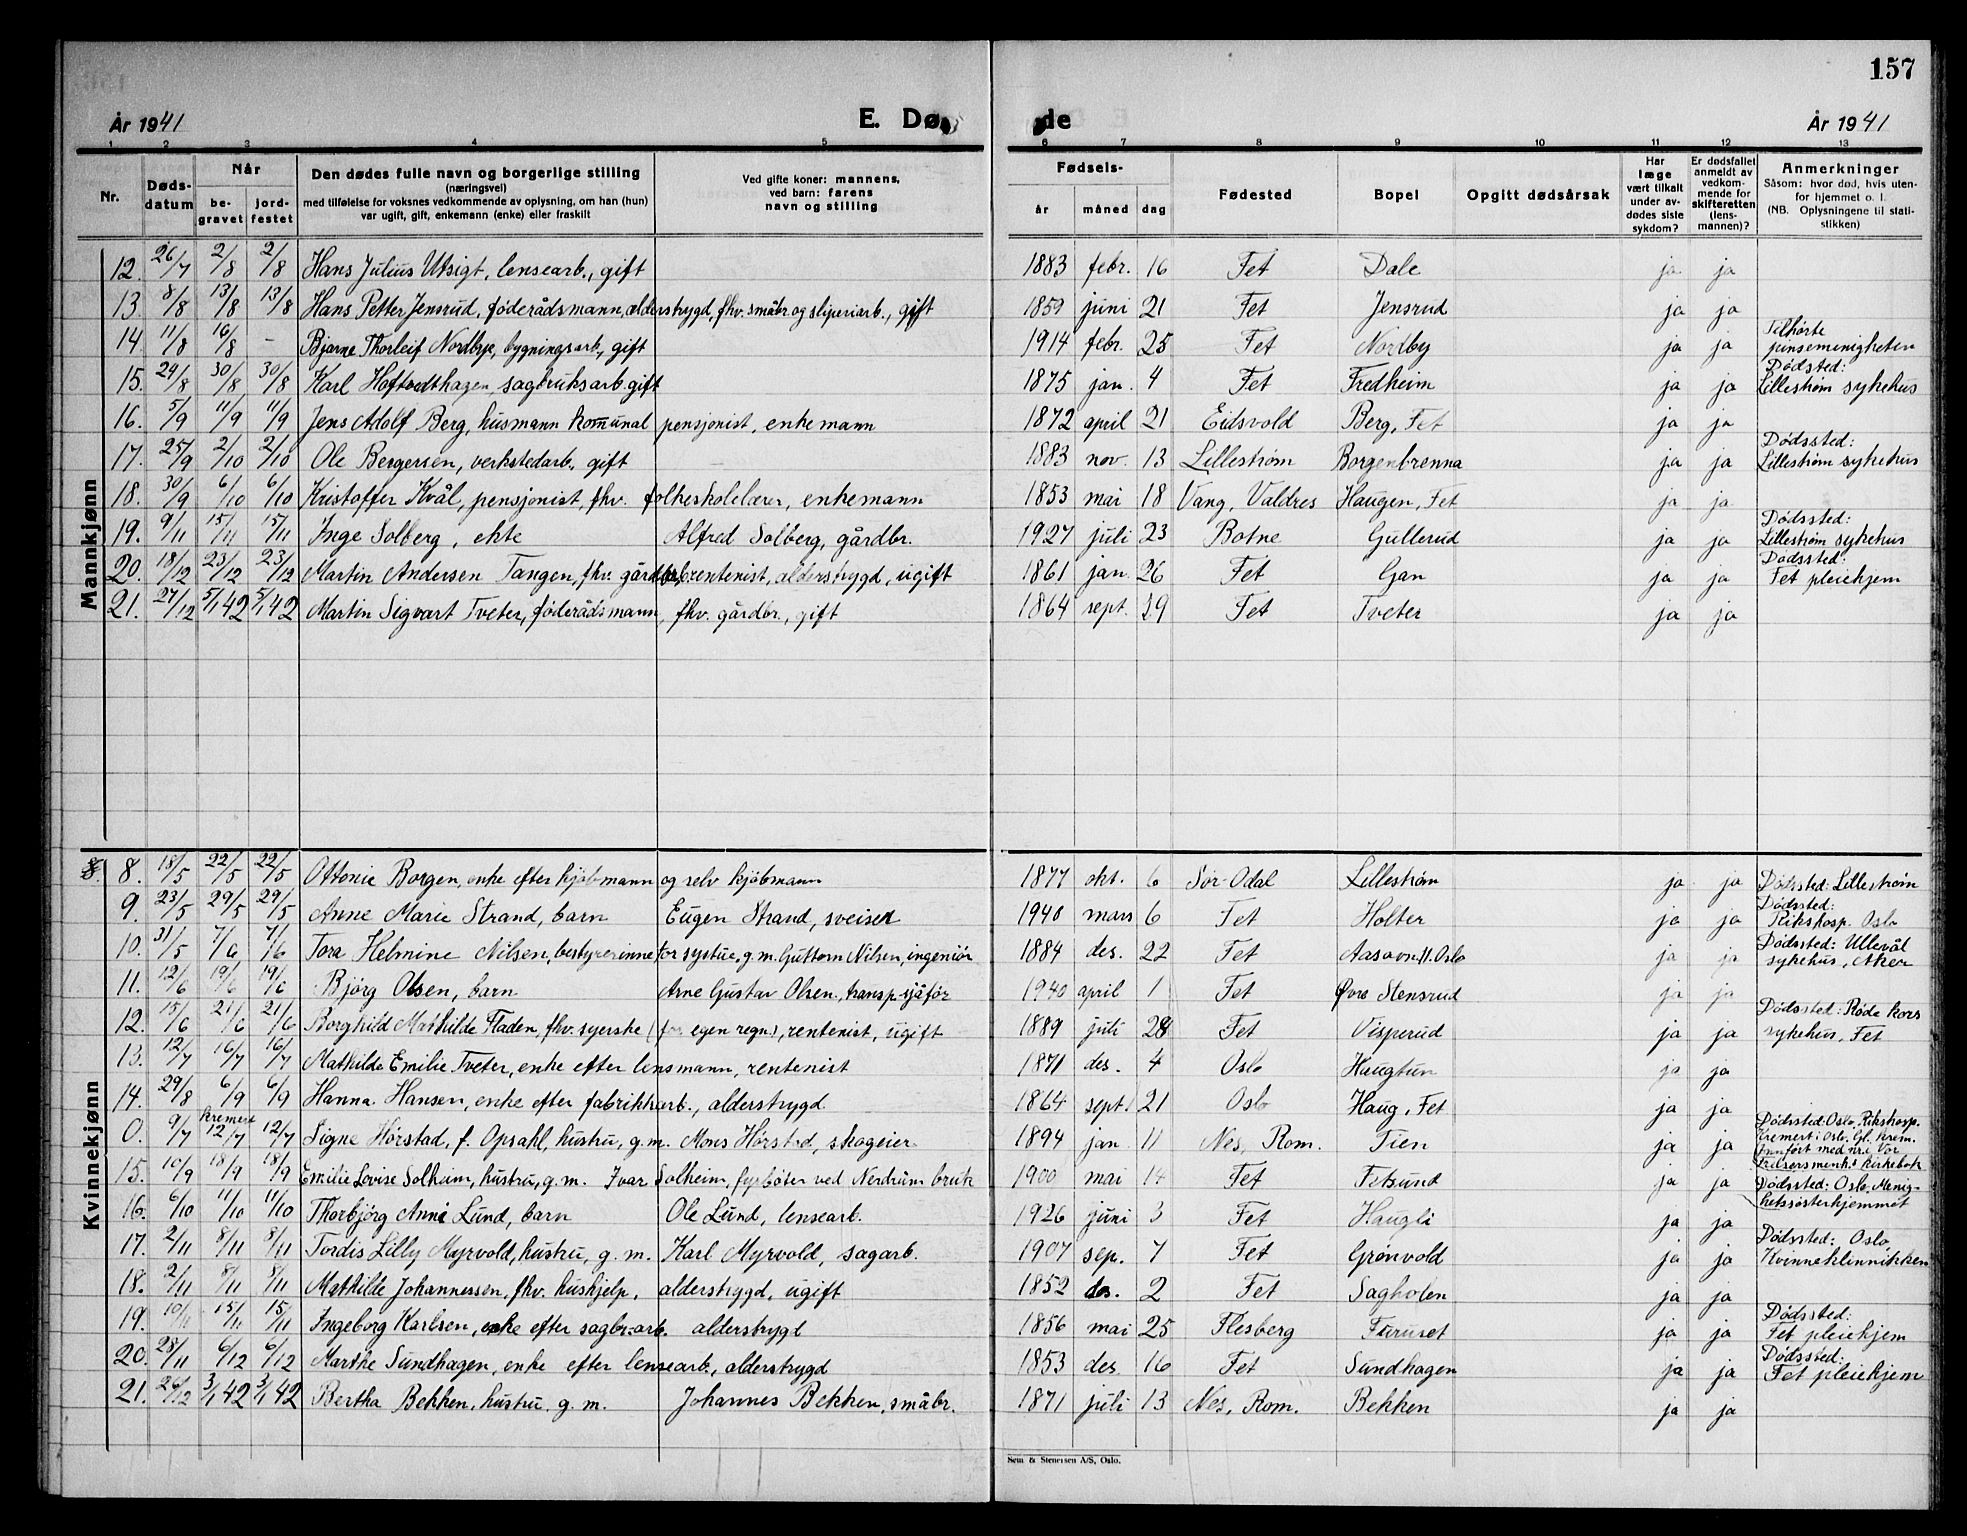 157
År 1941 E. Dø de År 1941
1 2 3 4 5 6 7 8 9 10 11 12 13
Nr. Døds-datum Når be-gravet jord-festet Den dødes fulle navn og borgerlige stilling (næringsvei) med tilføielse for voksnes vedkommende av oplysning, om han (hun) var ugift, gift, enkemann (enke) eller fraskilt Ved gifte koner: mannens, ved barn: farens navn og stilling Fødsels- år måned dag Fødested Bopel Opgitt dødsårsak Har læge vært tilkalt under av-dødes siste sykdom? Er dødsfallet anmeldt av vedkom-mende for skifteretten (lens-mannen)? Anmerkninger Såsom: hvor død, hvis uten-for hjemmet o. l. (NB. Oplysningene til stati-stikken)
Mannkjønn
12. 26/7 2/8 2/8 Hans Julius Utsigt, lensearb., gift 1883 febr. 16 Fet Dale ja ja
13. 8/8 13/8 13/8 Hans Petter Jensrud, føderådsmann, alderstrygd, fhv. småbr og sliperiarb., gift 1859 juni 21 Fet Jensrud ja ja
14. 11/8 16/8 - Bjarne Thorleif Nordbye, bygningsarb., gift 1914 febr. 25 Fet Nordby ja ja Tilhørte pinsemenigheten
15. 24/8 30/8 30/8 Karl Hoftvedthagen, sagbruksarb. gift 1875 jan. 4 Fet Fredheim ja ja Dødsted: Lillestrøm sykehus
16. 5/9 11/9 11/9 Jens Adolf Berg, husmann komunal pensjonist, enkemann 1872 april 21 Eidsvold Berg, Fet ja ja
17. 25/9 2/10 2/10 Ole Bergersen, verkstedarb., gift 1883 nov. 13 Lillestrøm Borgenbrenna ja ja Dødssted: Lillestrøm sykehus
18. 30/9 6/10 6/10 Kristoffer Kvål, pensjonist, fhv. folkeskolelærer, enkemann 1853 mai 18 Vang, Valdres Haugen, Fet ja ja
19. 9/11 15/11 15/11 Inge Solberg, ekte Alfred Solberg, gårdbr. 1927 juli 23 Botne Gullerud ja ja Dødssted: Lillestrøm sykehus
20. 18/12 23/12 23/12 Martin Andersen Tangen, fhv. gårdbr. rentenist, alderstrygd, ugift 1861 jan. 26 Fet Gan ja ja Dødssted: Fet pleiehjem
21. 27/12 5/1 42 5/1 42 Martin Sigvart Tveter, føderådsmann, fhv. gårdbr., gift 1864 sept. 29 Fet Tveter ja ja
Kvinnekjønn
8. 8. 18/5 22/5 22/5 Ottonie Borgen, enke efter kjøbmann og selv kjøbmann 1877 okt. 6 Sør-Odal Lillestrøm ja ja Dødssted: Lillestrøm
9. 23/5 29/5 29/5 Anne Marie Strand, barn Eugen Strand, sveiser 1940 mars 6 Fet Holter ja ja Dødssted: Rikshosp. Oslo
10. 31/5 7/6 7/6 Tora Helmine Nilsen, bestyrerinne for systue, g.m. Guttorm Nilsen, ingeniør 1884 des. 22 Fet Aasavn. 11. Oslo ja ja Dødssted: Ullevål sykehus, Aker
11. 12/6 19/6 19/6 Bjørg Olsen, barn Arne Gustav Olsen, transp-sjåfør 1940 april 1 Fet Øvre Stensrud ja ja
12. 15/6 21/6 21/6 Borghild Mathilde Fladen, fhv. syerske (for egen regn.), rentenist, ugift 1889 juli 28 Fet Visperud ja ja Dødssted: Røde kors sykehus, Fet
13. 12/7 16/7 16/7 Mathilde Emilie Tveter, enke efter lensmann, rentenist 1871 des. 4 Oslo Haugtun ja ja
14. 29/8 6/9 6/9 Hanna Hansen, enke efter fabrikkarb., alderstrygd 1864 sept. 21 Oslo Haug, Fet ja ja
0. 9/7 kremert 12/7 12/7 Signe Hørstad, f. Opsahl, hustru, g.m. Mons Hørstad, skogeier 1894 jan 11 Nes, Rom. Tien ja ja Dødssted: Oslo, Rikshosp. Kremert i Oslo, Gl. krem. Innført med nr. i Vår Frelsersmenh.s kirkebok
15. 10/9 18/9 18/9 Emilie Lovise Solheim, hustru, g.m. Ivar Solheim, fyrbøter ved Nerdrum bruk 1900 mai 14 Fet Fetsund ja ja Dødssted: Oslo, Menighetssøsterhjemmet
16. 6/10 11/10 11/10 Thorbjørg Anne Lund, barn Ole Lund, lensearb. 1926 juni 3 Fet Haugli ja ja
17. 2/11 8/11 8/11 Tordis Lilly Myrvold, hustru, g.m. Karl Myrvold, sagarb. 1907 sep. 7 Fet Grønvold ja ja Dødssted: Oslo, Kvinneklinnikken
18. 2/11 8/11 8/11 Mathilde Johannessen, fhv. hushjelp, alderstrygd, ugift 1852 des. 2 Fet Sagholen ja ja
19. 10/11 15/11 15/11 Ingeborg Karlsen, enke efter sagbr.arb. alderstrygd 1856 mai 25 Flesberg Furuset ja ja Dødssted: Fet pleiehjem
20. 28/11 6/12 6/12 Marthe Sundhagen, enke efter lensearb., alderstrygd 1853 des. 16 Fet Sundhagen ja ja Dødssted: Fet pleiehjem
21. 26/12 3/1 42 3/1 42 Bertha Bekken, hustru, g.m. Johannes Bekken, småbr. 1871 juli 13 Nes, Rom. Bekken ja ja
Sem & Stenersen A/S, Oslo.